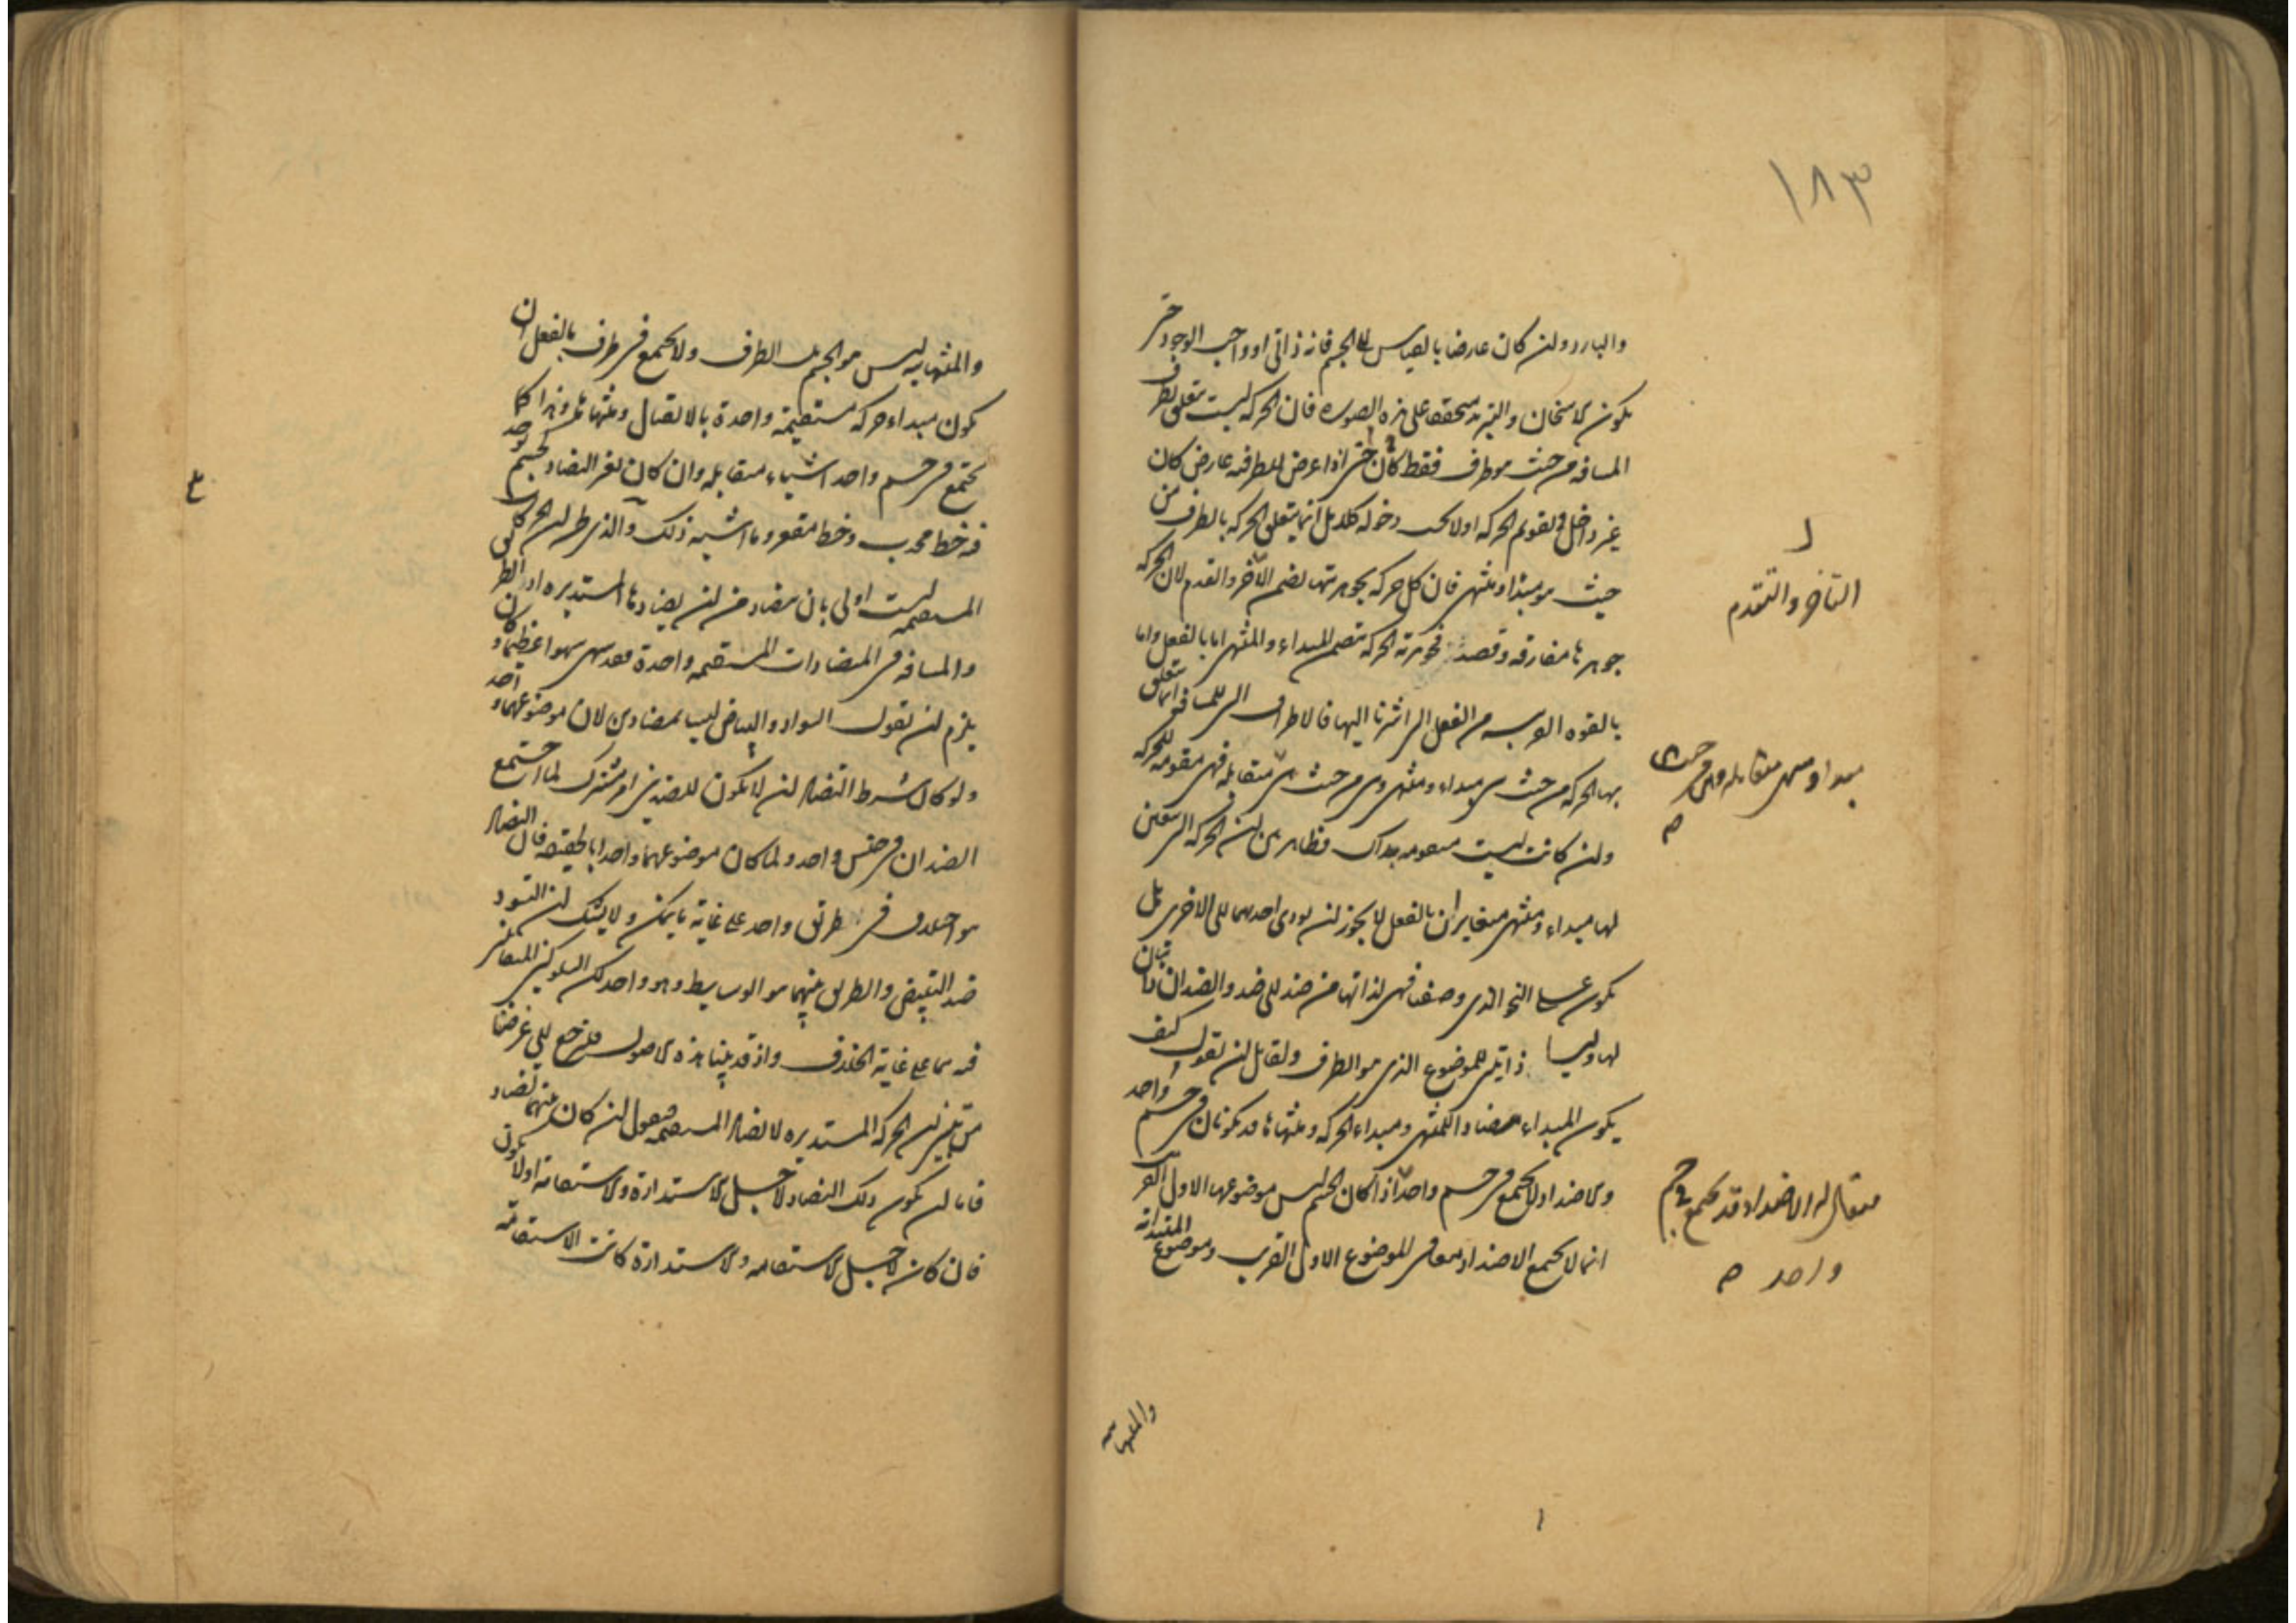 ١٨٣
والبارد ولن كان عارضا بالقياس الى الجسم فانه ذاتى او واجب الوجود حتى
يكون الاسخان والتبريد متحققا على هذه الصورة فان الحركة ليست تتعلق بطرف
المسافة من حيث هو طرف فقط كأن حتى اذا عرض للطرفية عارض كان
غير داخل فى تقويم الحركة اولا يجب دخوله كلا بل انما يتعلق الحركة بالطرف من
حيث هو مبدأ ومنتهى فان كل حركة بجوهريتها تضمن التأخر والتقدم لان الحركة
جوهرها مفارقة وقصد فجوهرية الحركة تتضمن المبداء والمنتهى اما بالفعل واما
بالقوه القريبه من الفعل التى اشرنا اليها فالاطراف التى للمسافة انما تتعلق
بها الحركة من حيث هى مبداء ومنتهى وهى من حيث هى متقابله فهى مقومه للحركه
ولن كانت ليست مقومه بذاك فظاهر بين لن الحركة التى يتعين
لها مبداء ومنتهى متغايران بالفعل لا يجوز لن يودى احدهما الى الاخرى بل
يكون على النحو الذى وصفنا فهى لذاتها من ضد الى ضد والضدان ذاتيان
لها وليسا ذاتيين للموضوع الذى هو الطرف ولقايل لن يقول كيف
يكون المبداء مضادا للمنتهى ومبداء الحركه ومنتهاها قد يكونان فى جسم واحد
والاضداد لا يجتمع فى جسم واحد اذا كان الجسم ليس موضوعها الاول القريب
انما لا يجتمع الاضداد معا فى الموضوع الاول القريب وموضوع المبتدائية
والمنتهاييه
التأخر والتقدم
مبداء ومنتهى متقابله وهى من حيث هى
فيقال له ان الاضداد قد يجتمع فى جسم
واحد
والمنتهاييه ليس هو الجسم بل الطرف ولا يجتمع فى طرف بالفعل ان
يكون مبداء حركه مستقيمة واحدة بالاتصال ومنتهاها وهذا كما
يجتمع فى جسم واحد اشياء متقابله وان كان لغير التضاد كجسم يوجد
فيه خط محدب وخط مقعر وما اشبه ذلك والذى ظن لن الحركات
المستقيمه ليست اولى بان تتضاد من لن يضادها المستديره اذ الطرفان
والمسافة فى المتضادات المستقيمه واحدة فقد سهى سهوا عظيما وكان
يلزم لن نقول السواد والبياض ليسا بمتضادين لان موضوعهما واحد
ولو كان شرط التضاد لن لا يكون للضدين امر مشترك لما اجتمع
الضدان فى جنس واحد ولما كان موضوعهما واحدا بالحقيقه فان التضاد
هو اختلاف فى طريق واحد على غاية ما يمكن ولا يشك لن التسود
ضد التبيض والطريق بينهما هو الوسايط وهو واحد لكن السلوكين المتقابلين
فيه هما على غاية الخلاف واذ قد بينا هذه الاصول فلنرجع الى غرضنا
من تبيين لن الحركه المستديره لا تضاد المستقيمه فنقول لن كان بينهما تضاد
فاما لن يكون ذلك التضاد لاجل الاستدارة والاستقامة او لا يكون
فان كان لاجل الاستقامه والاستدارة كانت الاستقامة